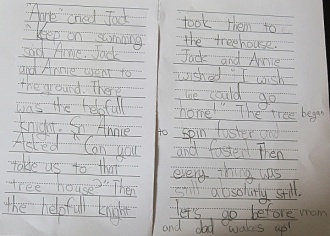 "Annie" cried Jack
"keep on swimming
said Annie. Jack
and Annie went to
the ground. There
was the helpfull
knight. Sir Annie
Asked "Can you
take us to that
tree house?" Then
the helpfull knight
took them to
the treehouse.
Jack and Annie
wished "I wish
we could go
home" The tree began
to spin faster and
and faster! Then
every thing was
still absolutly still.
let's go before mom
and dad wakes up!